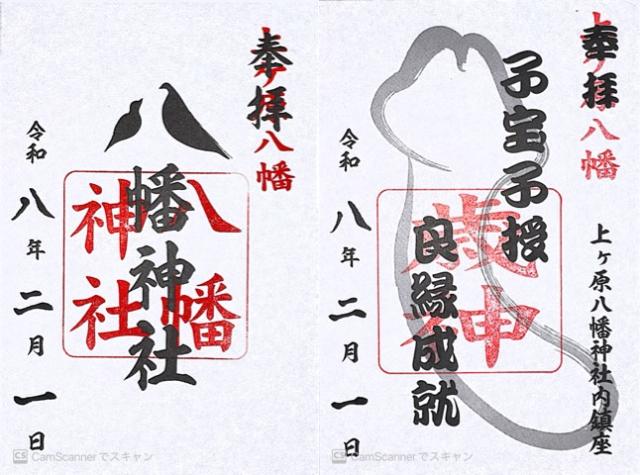 奉拝
上ヶ原八幡
八幡神社
八幡
神社
令和八年二月一日
CS CamScanner でスキャン
奉拝
上ヶ原八幡
子宝子授
良縁成就
歳神
上ヶ原八幡神社内鎮座
令和八年二月一日
CS CamScanner でスキャン